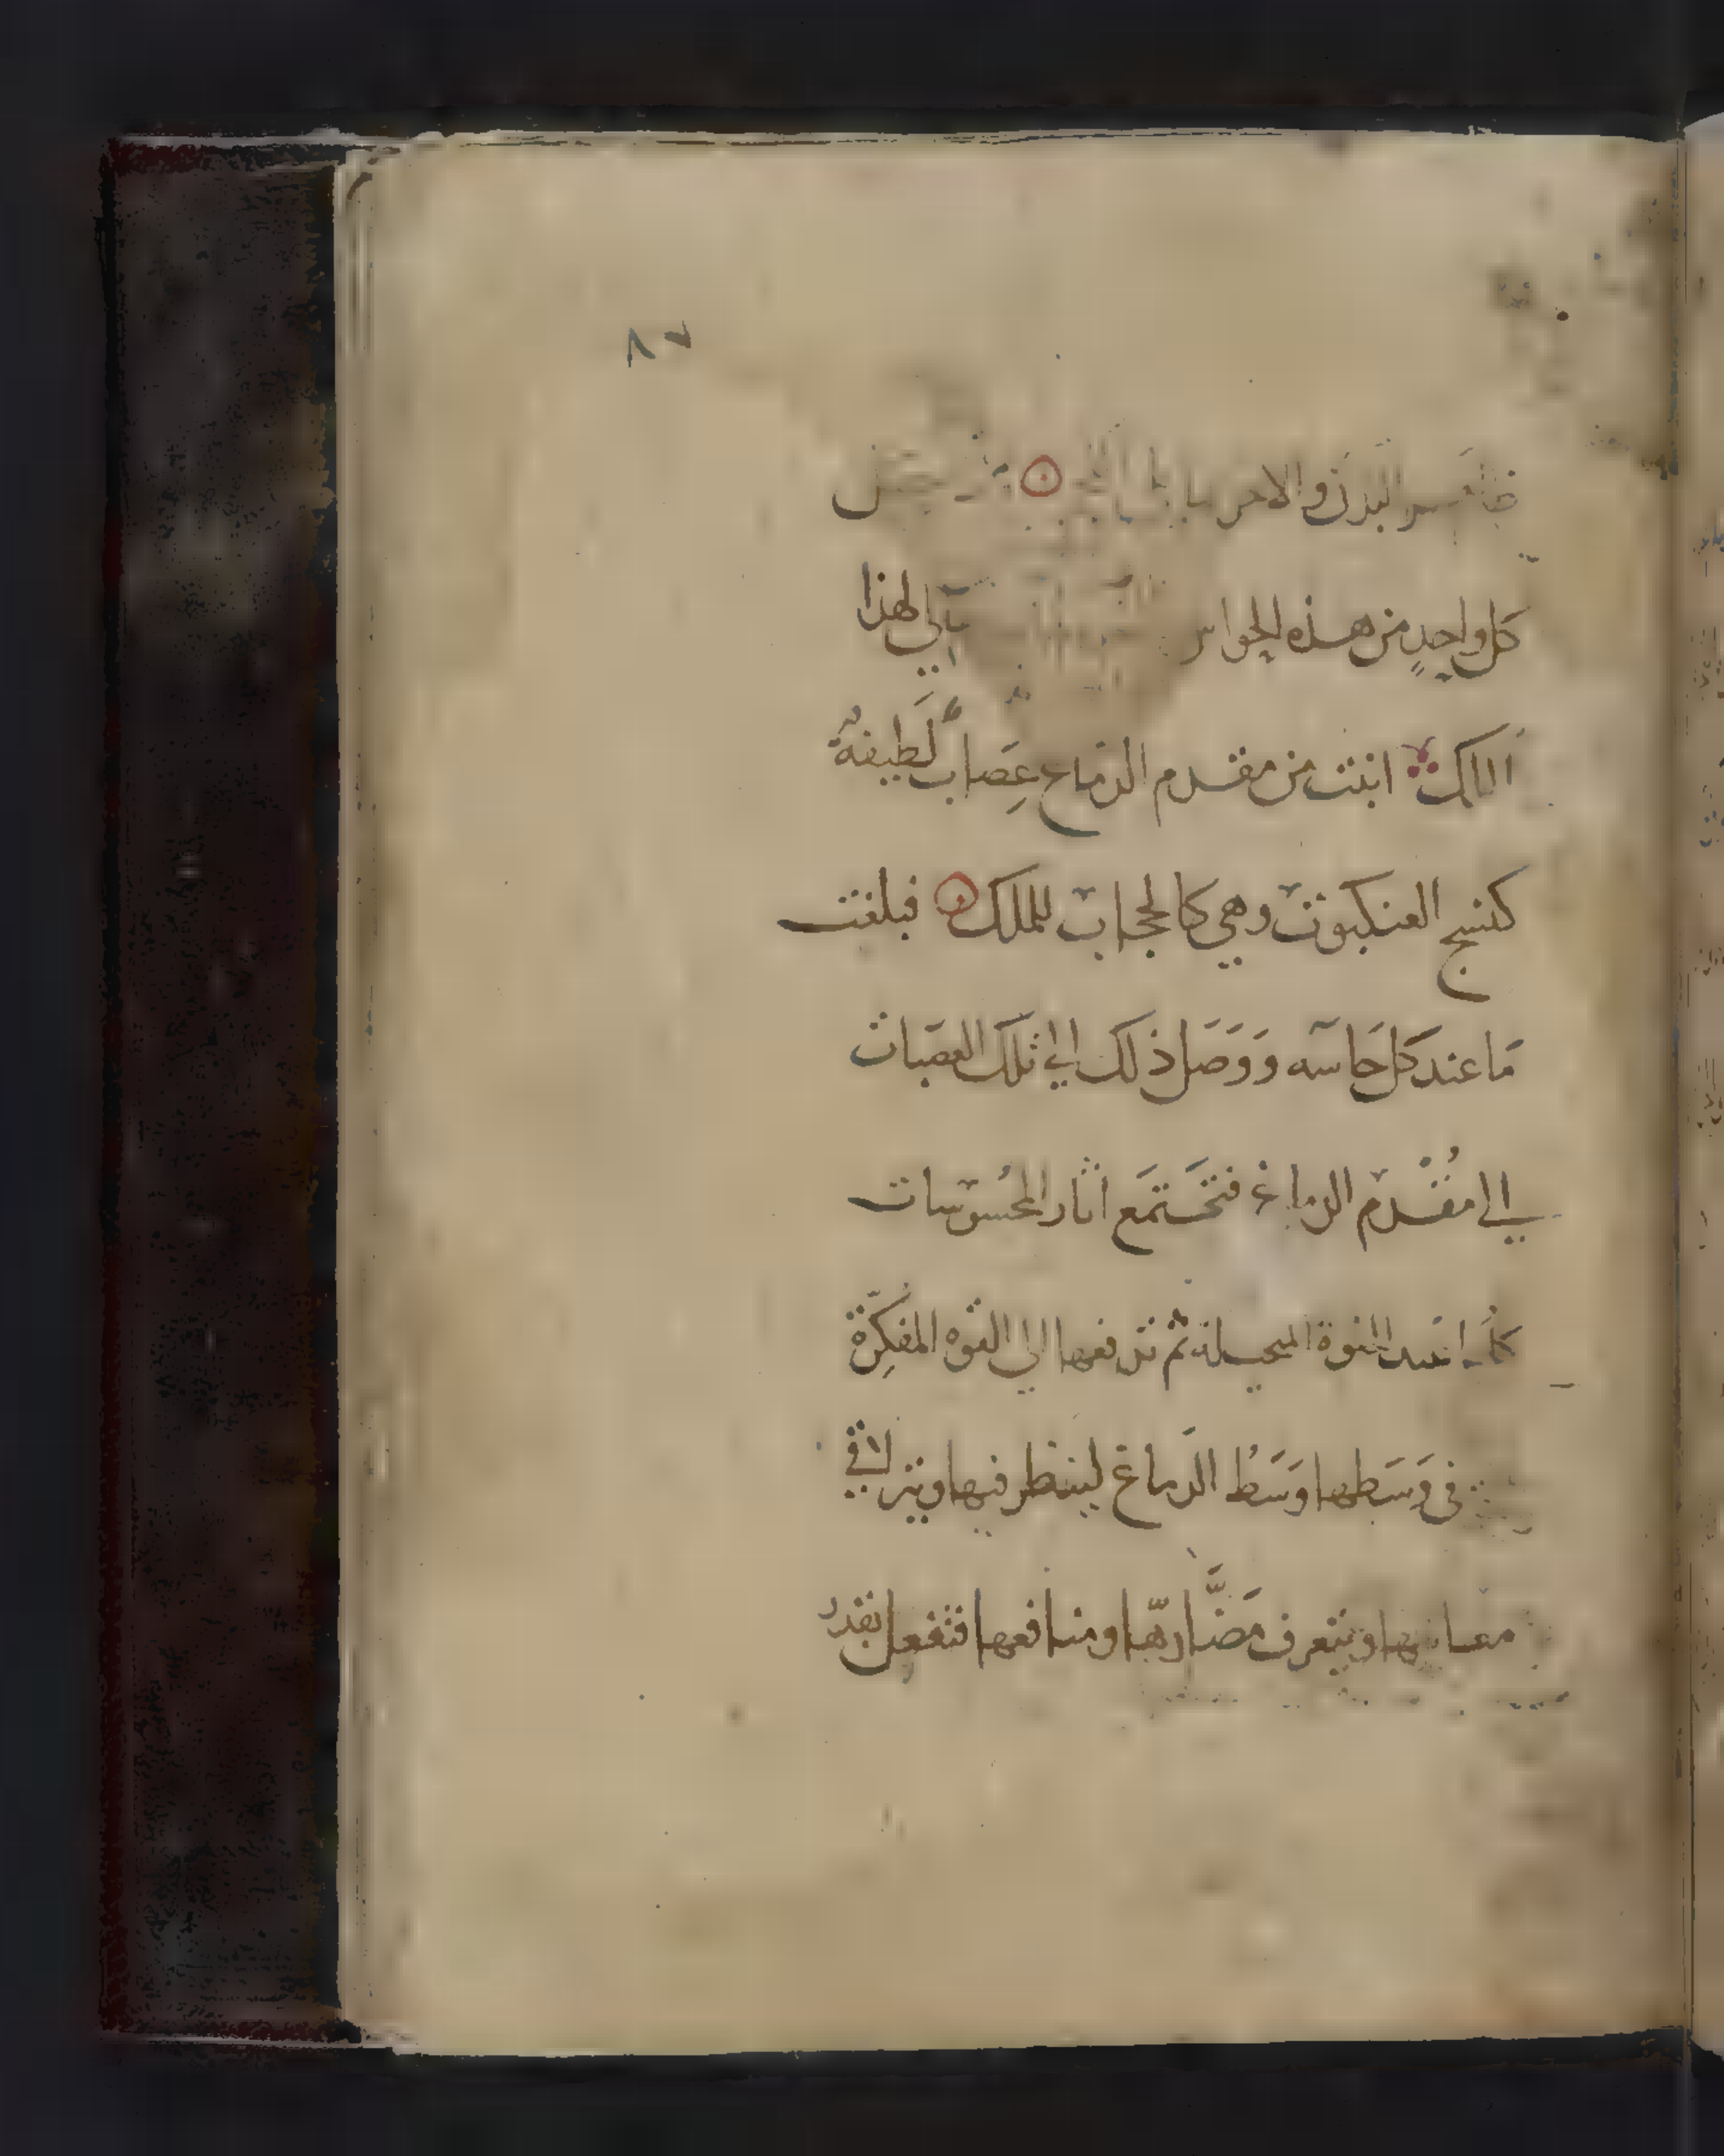 ٨٧
البدن والامر
كل واحدٍ من هذه الحواس لهذا
الملك انبثت من مقدم الدماغ عِصَابٌ لَطيفةٌ
كنسج العنكبوت وهي كالحجاب للملك فبلغت
مَا عند كل حَاسه وَوَصَل ذلك الي تلك العصَبات
الي مُقْدم الدماغ فتَجَتمَع اثار المحسُوسات
القوة المتخيلة ثم تدفعها الي القوه المفكِرّة
في وَسَطها وَسَطُ الدَماغ لينظر فيها ويتر
معانيها ويتعرف مَضَّارهّا ومنافعها فتفعل بقدر